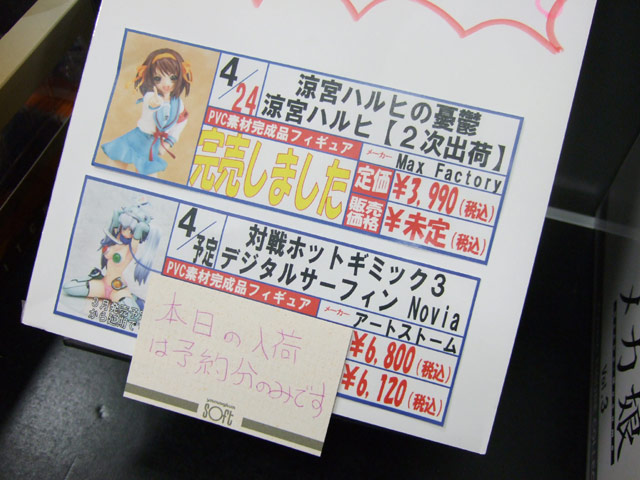 4/24
涼宮ハルヒの憂鬱
涼宮ハルヒ【2次出荷】
PVC素材完成品フィギュア
メーカー Max Factory
完売しました
定価 ¥3,990(税込)
販売価格 ¥未定(税込)
4/予定
対戦ホットギミック3
デジタルサーフィン Novia
PVC素材完成品フィギュア
メーカー アートストーム
¥6,800(税込)
¥6,120(税込)
本日の入荷
は予約分のみです
soft
メカ娘